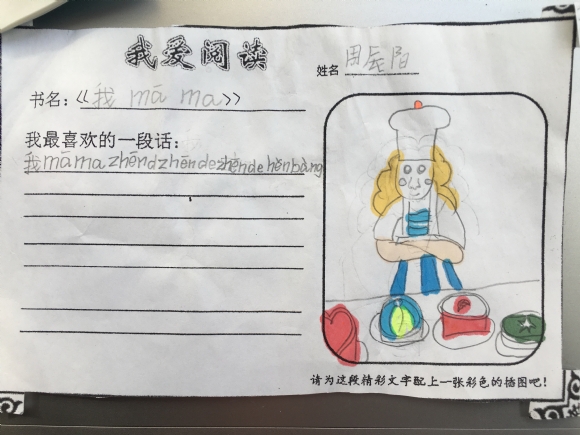 我爱阅读
姓名 周辰阳
书名:《我 mā ma》
我最喜欢的一段话:
我māmazhēndzhēndezhēndehěnbàng
请为这段精彩文字配上一张彩色的插图吧!